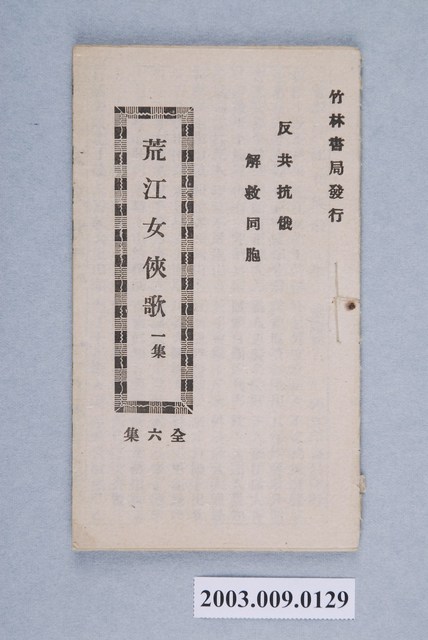 竹林書局發行
反共抗俄
解救同胞
荒江女俠歌 一集
全六集
2003.009.0129